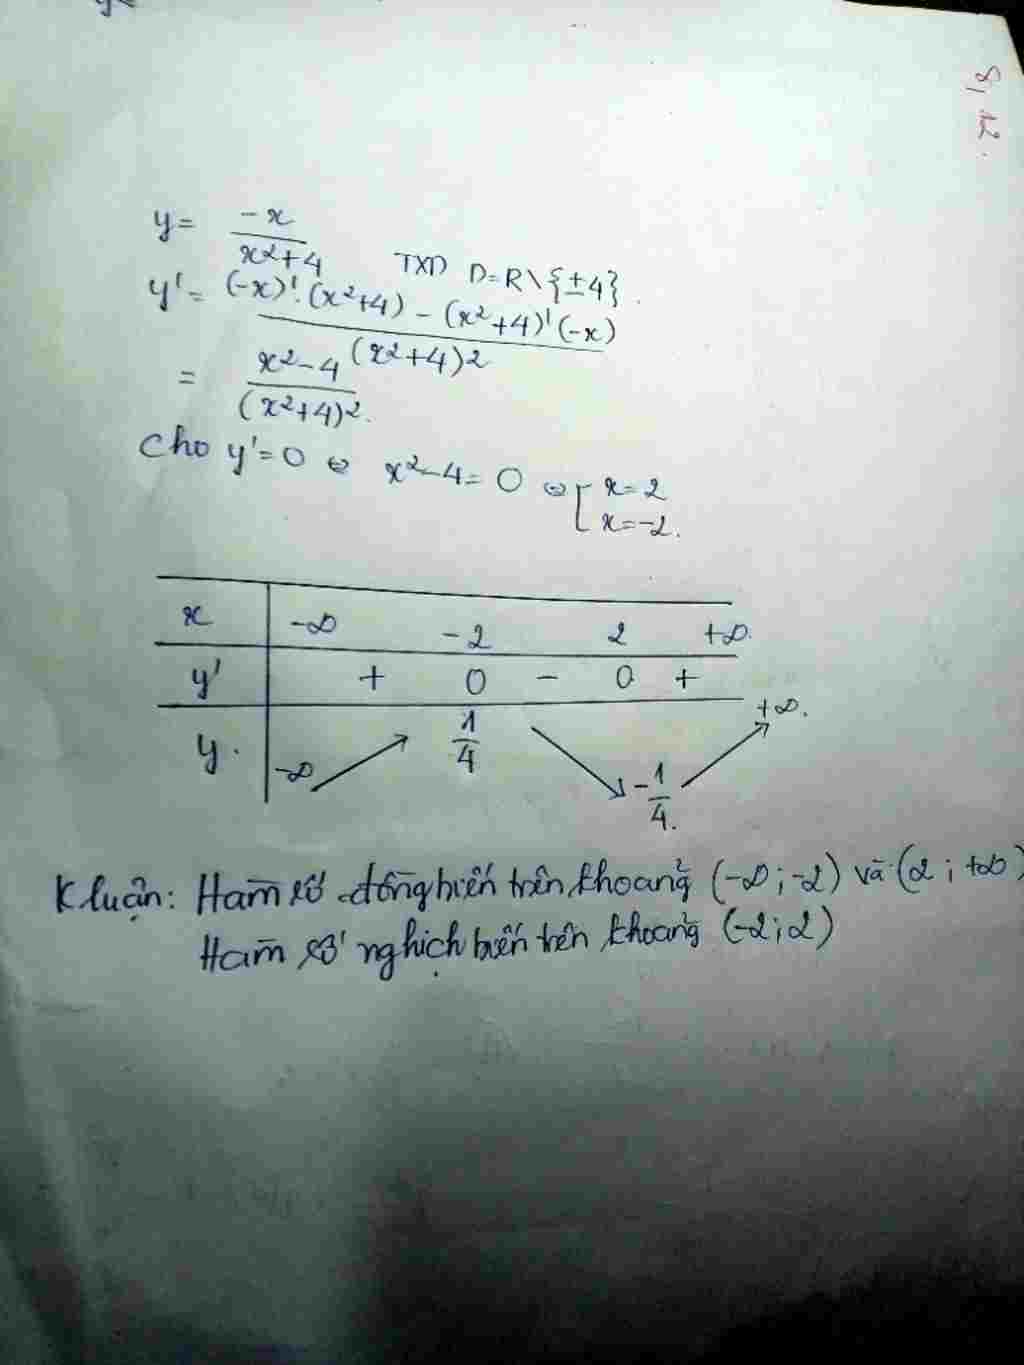 8, 12.
y = -x / x²+4 TXD D=R\{±4}.
y' = (-x)'.(x²+4) - (x²+4)'(-x) / (x²+4)²
= x²-4 / (x²+4)².
Cho y'=0 ⇔ x²-4=0 ⇔ [ x=2
x=-2.
x -∞ -2 2 +∞.
y' + 0 - 0 +
y. -∞ ↗ 1/4 ↘ -1/4. ↗ +∞.
K luận: Hàm số đồng biến trên khoảng (-∞;-2) và (2;+∞)
Hàm số nghịch biến trên khoảng (-2;2)